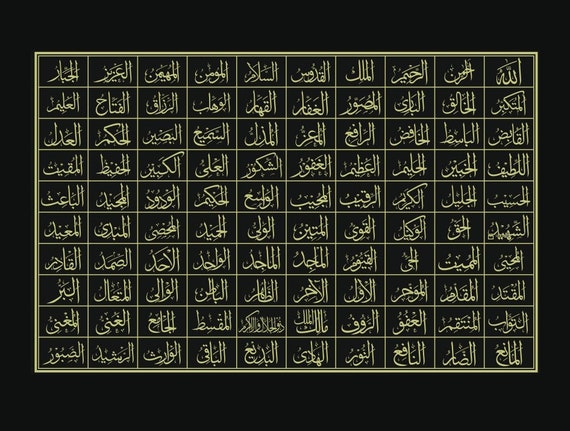 الله الرحمن الرحيم الملك القدوس السلام المؤمن المهيمن العزيز الجبار
المتكبر الخالق البارئ المصور الغفار القهار الوهاب الرزاق الفتاح العليم
القابض الباسط الخافض الرافع المعز المذل السميع البصير الحكم العدل
اللطيف الخبير الحليم العظيم الغفور الشكور العلي الكبير الحفيظ المقيت
الحسيب الجليل الكريم الرقيب المجيب الواسع الحكيم الودود المجيد الباعث
الشهيد الحق الوكيل القوي المتين الولي الحميد المحصي المبدئ المعيد
المحيي المميت الحي القيوم الواجد الماجد الواحد الاحد الصمد القادر
المقتدر المقدم المؤخر الاول الاخر الظاهر الباطن الوالي المتعال البر
التواب المنتقم العفو الرؤف مالك الملك ذو الجلال والاكرام المقسط الجامع الغني المغني
المانع الضار النافع النور الهادي البديع الباقي الوارث الرشيد الصبور